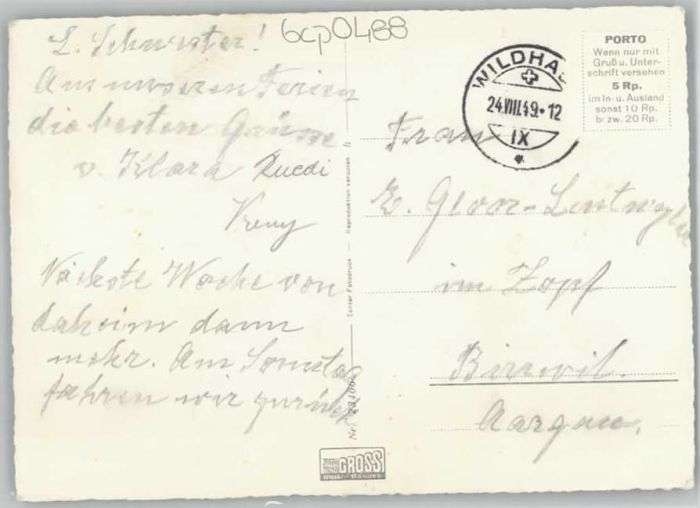 6cp0488
L. Schwester!
Aus unseren Ferien
die besten Grüsse
v. Klara Ruedi
Vreny
Nächste Woche von
daheim dann
mehr. Am Sonntag
fahren wir zurück
WILDHAUS
24.VIII.49.-12
IX
PORTO
Wenn nur mit
Gruß u. Unter-
schrift versehen
5 Rp.
im In- u. Ausland
sonst 10 Rp.
bzw. 20 Rp.
Frau
E. Gloor-
im Zopf
Birrwil.
Aargau.
Nr.
GROSS